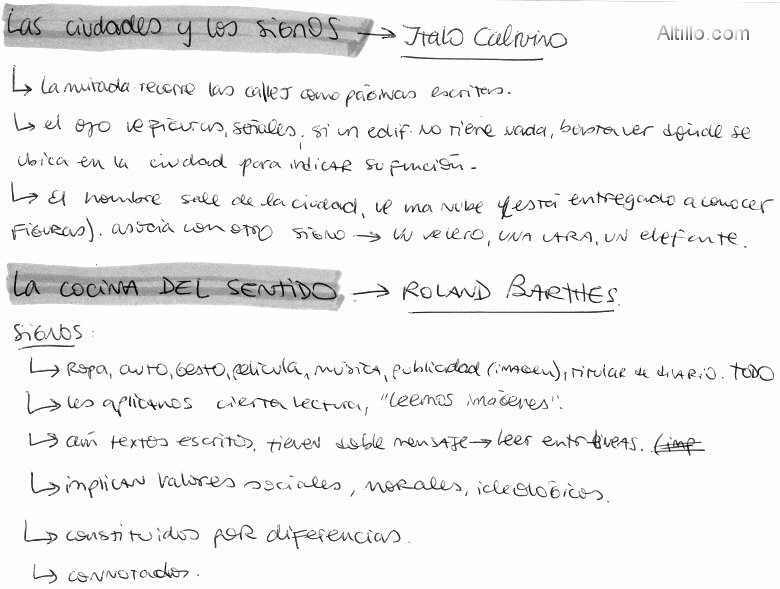 Las ciudades y los signos → Italo Calvino
Altillo.com
↳ La mirada recorre las calles como páginas escritas.
↳ el ojo ve figuras, señales, si un edif. no tiene nada, basta ver dónde se
ubica en la ciudad para indicar su función.
↳ El hombre sale de la ciudad, ve una nube (está entregado a conocer
FIGURAS). asocia con otro signo → un velero, una cara, un elefante.
LA COCINA DEL SENTIDO → ROLAND BARTHES.
SIGNOS:
↳ Ropa, auto, gesto, película, música, publicidad (imagen), titular de diario. TODO
↳ les aplicamos cierta lectura, "leemos imágenes".
↳ aún textos escritos, tienen doble mensaje → leer entre líneas. (imp
↳ implican valores sociales, morales, ideológicos.
↳ constituidos por diferencias.
↳ connotados.